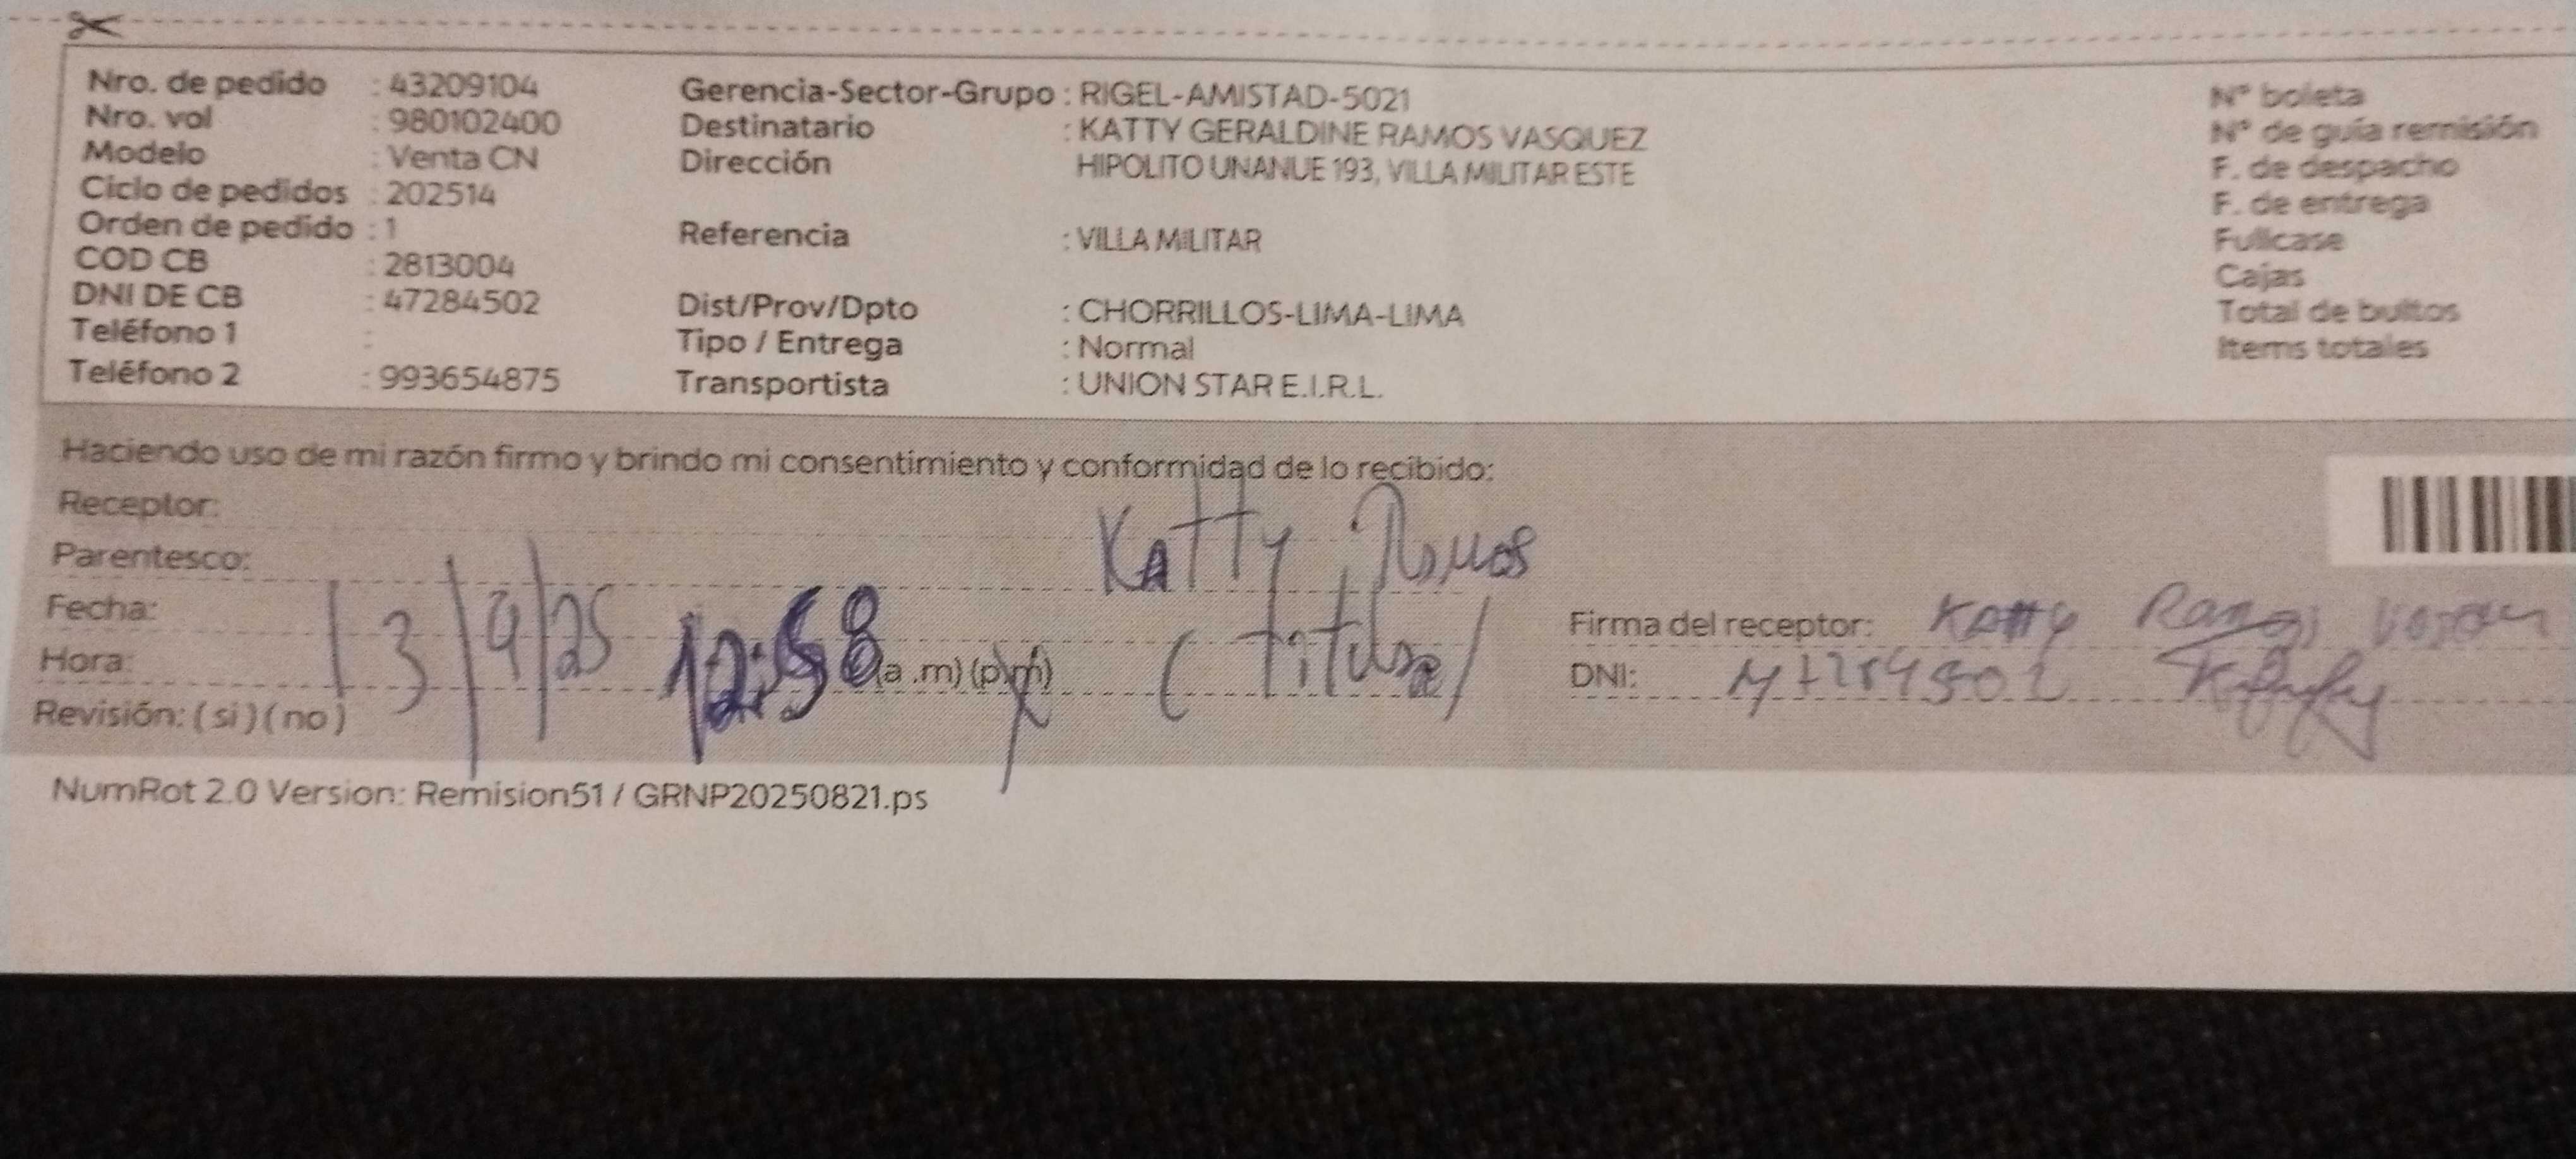 Nro. de pedido : 43209104 Gerencia-Sector-Grupo : RIGEL-AMISTAD-5021 N° boleta
Nro. vol : 980102400 Destinatario : KATTY GERALDINE RAMOS VASQUEZ N° de guía remisión
Modelo : Venta CN Dirección HIPOLITO UNANUE 193, VILLA MILITAR ESTE F. de despacho
Ciclo de pedidos : 202514 F. de entrega
Orden de pedido : 1 Referencia : VILLA MILITAR Fullcase
COD CB : 2813004 Cajas
DNI DE CB : 47284502 Dist/Prov/Dpto : CHORRILLOS-LIMA-LIMA Total de bultos
Teléfono 1 : Tipo / Entrega : Normal Items totales
Teléfono 2 : 993654875 Transportista : UNION STAR E.I.R.L.
Haciendo uso de mi razón firmo y brindo mi consentimiento y conformidad de lo recibido:
Receptor:
Parentesco: Katty Ramos
Fecha: 13/9/25 Firma del receptor: Katty Ramos
Hora: 12:58 (a .m) (p.m) (titular) DNI: 47284502
Revisión: ( si ) ( no )
NumRot 2.0 Version: Remision51 / GRNP20250821.ps